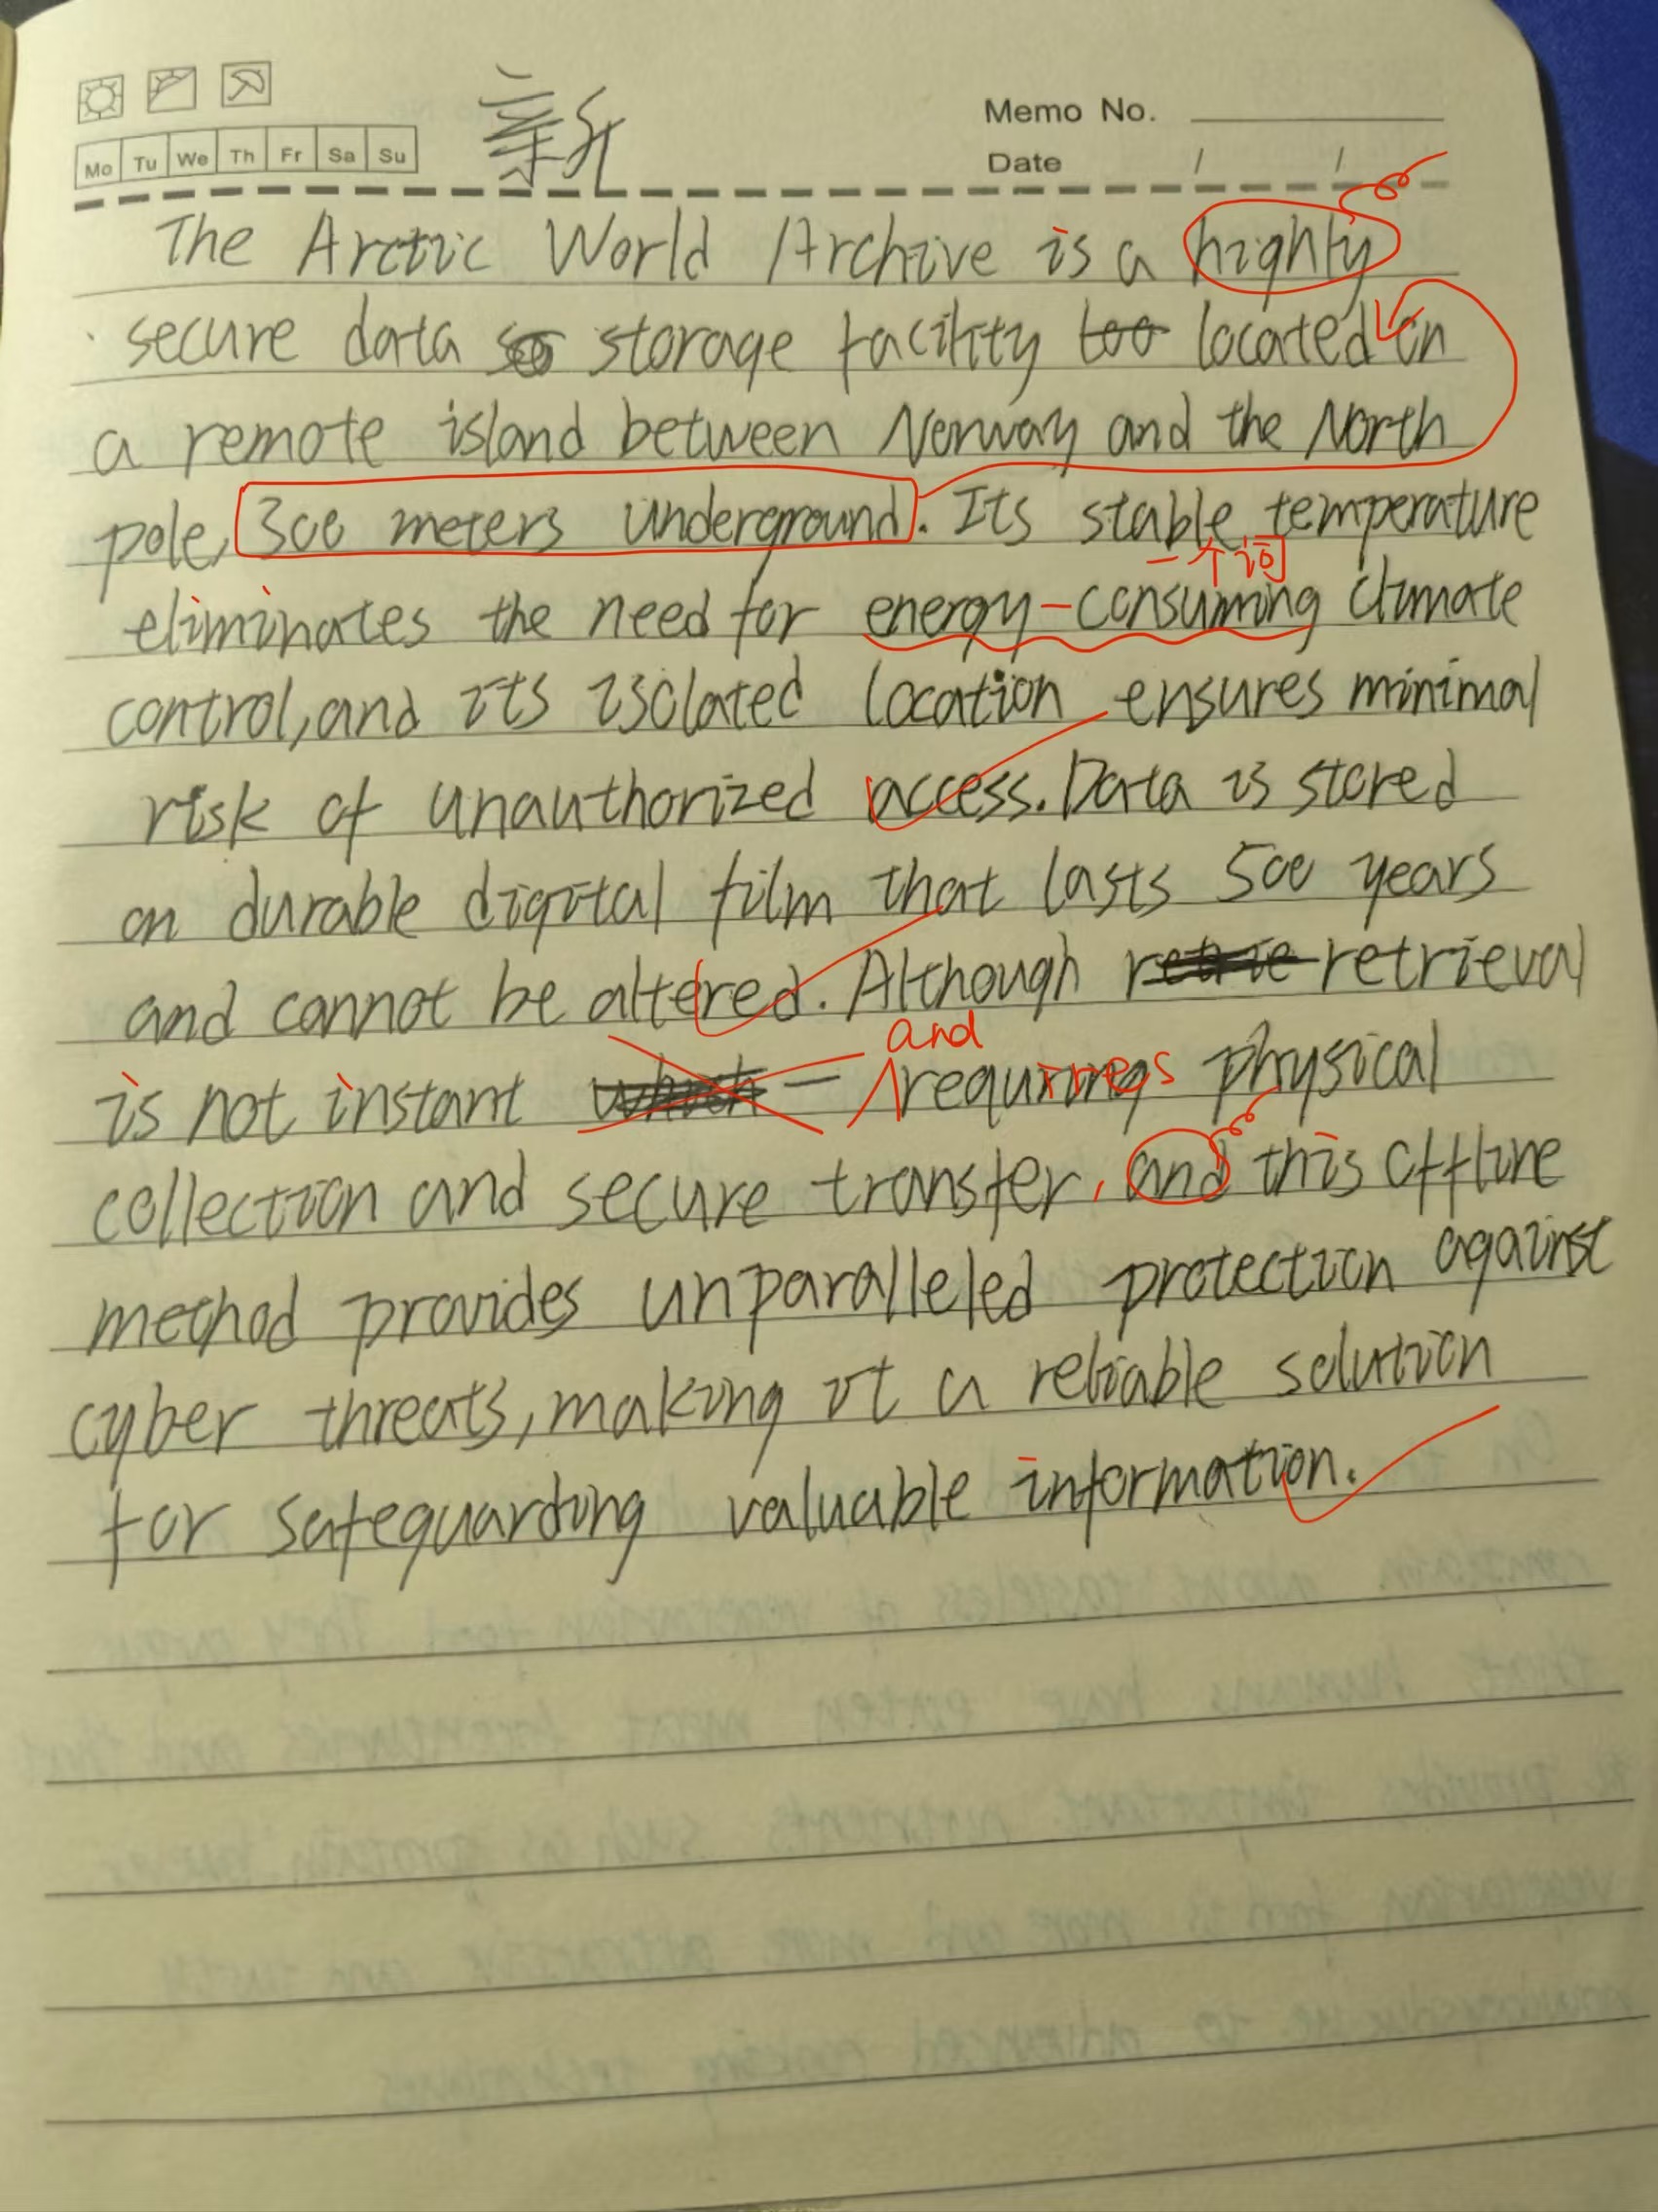 新
Memo No.
Mo Tu We Th Fr Sa Su
Date / /
The Arctic World Archive is a highly
secure data storage facility too located on
a remote island between Norway and the North
pole, 300 meters underground. Its stable temperature
一个词
eliminates the need for energy-consuming climate
control, and its isolated location ensures minimal
risk of unauthorized access. Data is stored
on durable digital film that lasts 500 years
and cannot be altered. Although retrieval
and
is not instant — requires physical
collection and secure transfer, and this offline
method provides unparalleled protection against
cyber threats, making it a reliable solution
for safeguarding valuable information.